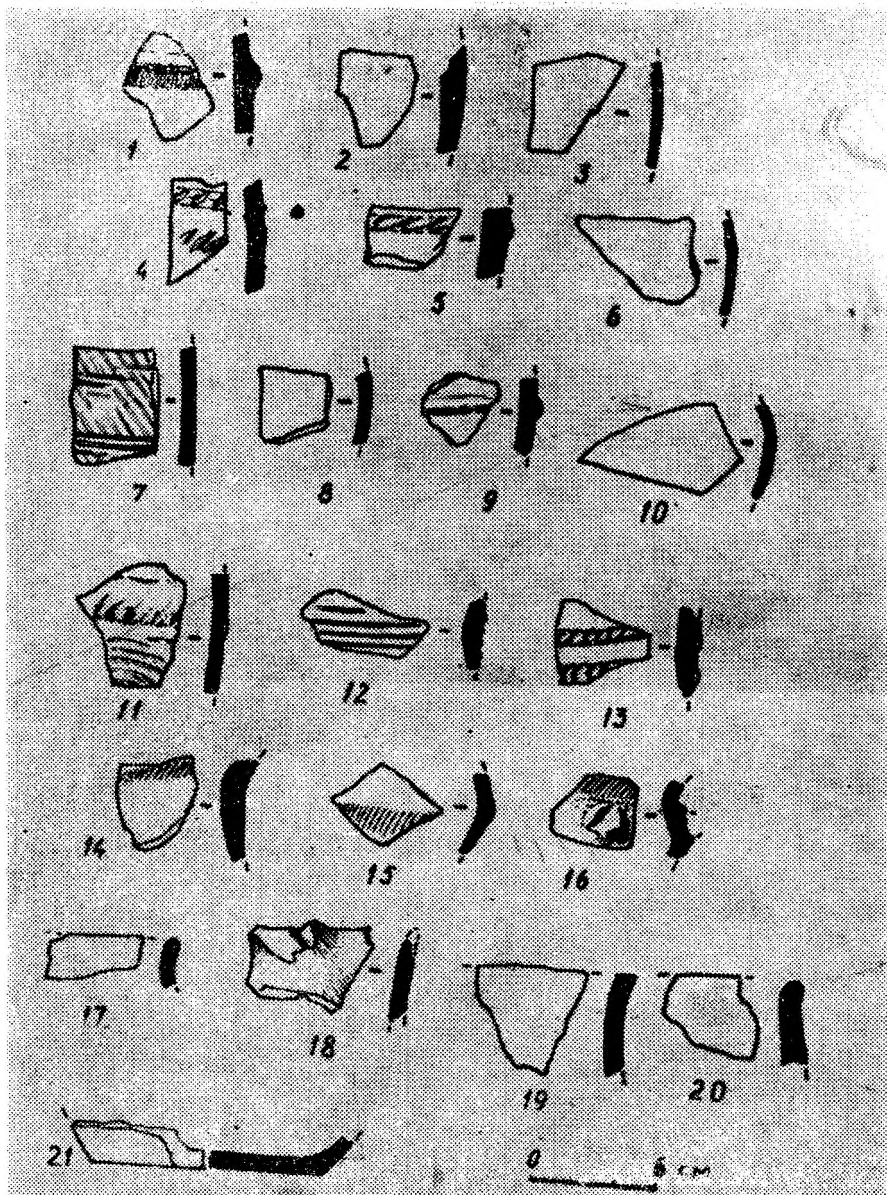 1 2 3
4 5 6
7 8 9 10
11 12 13
14 15 16
17 18 19 20
21 0 6 cm